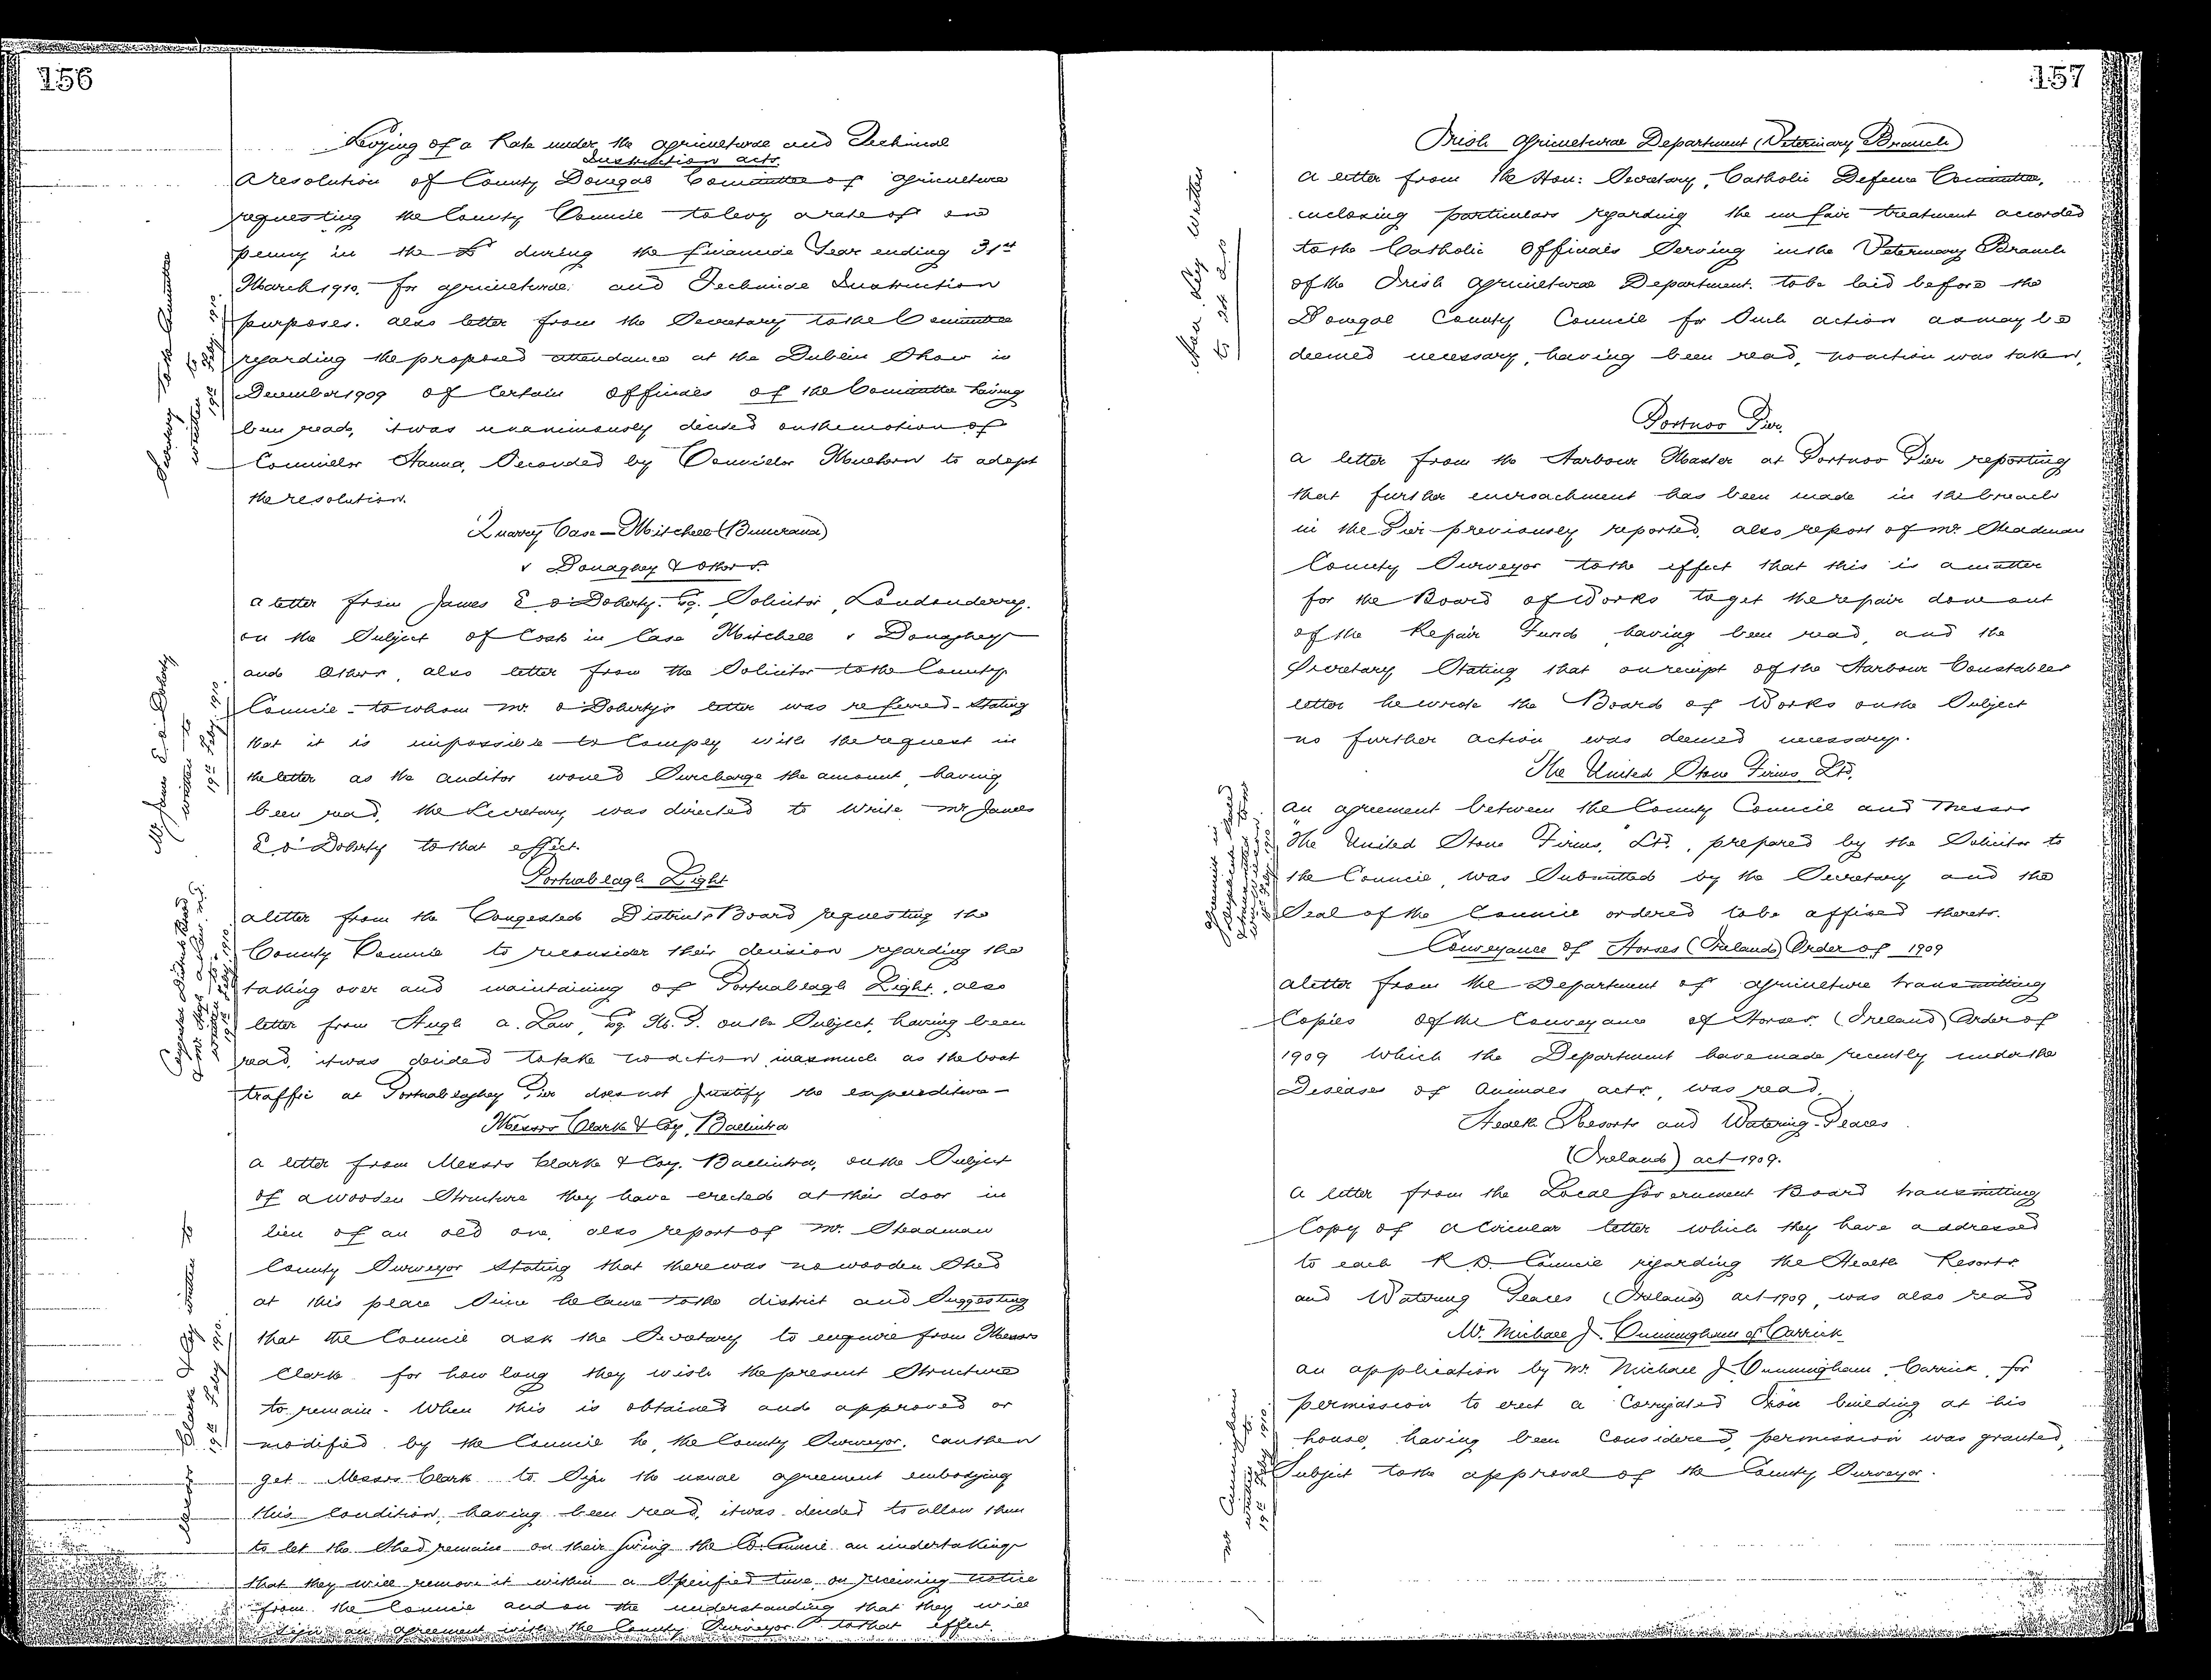 156
Levying of a Rate under the Agricultural and Technical
Instruction Acts.
A resolution of County Donegal Committee of Agriculture
requesting the County Council to levy a rate of one
penny in the £ during the financial Year ending 31st
March 1910. for agricultural and Technical Instruction
purposes. also letter from the Secretary to the Committee
regarding the proposed attendance at the Dublin Show in
December 1909 of Certain Officials of the Committee having
been read, it was unanimously decided on the motion of
Councillor Hanna, Seconded by Councillor to adopt
the resolution.
Secretary to the Committee
written to
19th Feby. 1910.
Quarry Case — Mitchell (Buncrana)
v Donaghey & others.
a letter from James E O'Doherty. Esq. Solicitor, Londonderry.
on the Subject of Costs in Case Mitchell v Donaghey
and Others, also letter from the Solicitor to the County
Council - to whom Mr. O'Doherty's letter was referred - Stating
that it is impossible to Comply with the request in
the letter as the auditor would Surcharge the amount, having
been read, the Secretary was directed to write Mr James
E O'Doherty to that effect.
Mr James E O'Doherty
written to
19th Feby. 1910.
Portnablagh Light
a letter from the Congested Districts Board requesting the
County Council to reconsider their decision regarding the
taking over and maintaining of Portnablagh Light, also
letter from Hugh A. Law, Esq. M.P. on the Subject, having been
read, it was decided to take no action inasmuch as the boat
traffic at Portnablaghey Pier does not Justify the expenditure -
Congested Districts Board
& Mr Hugh A Law M.P.
written to
19th Feby 1910.
Messrs Clark & Coy, Ballintra
a letter from Messrs Clark & Coy. Ballintra, on the Subject
of a wooden Structure they have erected at their door in
lieu of an old one, also report of Mr. Steadman
County Surveyor Stating that there was no wooden Shed
at this place Since he Came to the district and Suggesting
that the Council ask the Secretary to enquire from Messrs
Clark for how long they wish the present Structure
to remain. When this is obtained and approved or
modified by the Council he, the County Surveyor, can then
get Messrs Clark to Sign the usual agreement embodying
this Condition, having been read, it was decided to allow them
to let the Shed remain on their giving the Co. Council an undertaking
that they will remove it within a Specified time, on receiving notice
from the Council and on the understanding that they will
sign an agreement with the County Surveyor to that effect.
Messrs Clark & Coy written to
19th Feby 1910.
157
Irish Agricultural Department (Veterinary Branch)
a letter from the Hon: Secretary, Catholic Defence Committee,
enclosing particulars regarding the unfair treatment accorded
to the Catholic Officials Serving in the Veterinary Branch
of the Irish Agricultural Department. to be laid before the
Donegal County Council for Such action as may be
deemed necessary, having been read, no action was taken.
Portnoo Pier.
a letter from the Harbour Master at Portnoo Pier reporting
that further encroachment has been made in the breach
in the Pier previously reported, also report of Mr. Steadman
County Surveyor to the effect that this is a matter
for the Board of Works to get the repair done out
of the Repair Fund, having been read, and the
Secretary Stating that on receipt of the Harbour Constables
letter he wrote the Board of Works on the Subject
no further action was deemed necessary.
The United Stone Firms Ltd.
an agreement between the County Council and Messrs
"The United Stone Firms," Ltd., prepared by the Solicitor to
the Council, was Submitted by the Secretary and the
Seal of the Council ordered to be affixed thereto.
Conveyance of Horses (Ireland) Order of 1909
a letter from the Department of Agriculture transmitting
Copies of the Conveyance of Horses (Ireland) Order of
1909 which the Department have made recently under the
Diseases of Animals acts, was read.
Health Resorts and Watering-Places
(Ireland) act 1909.
a letter from the Local Government Board transmitting
Copy of a Circular letter which they have addressed
to each R.D. Council regarding the Health Resorts
and Watering Places (Ireland) act 1909, was also read
Mr. Michael J. Cunningham of Carrick
an application by Mr. Michael J. Cunningham, Carrick, for
permission to erect a Corrugated Iron building at his
house, having been Considered, permission was granted,
Subject to the approval of the County Surveyor.
Mr Cunningham
written to
19th Feby 1910.